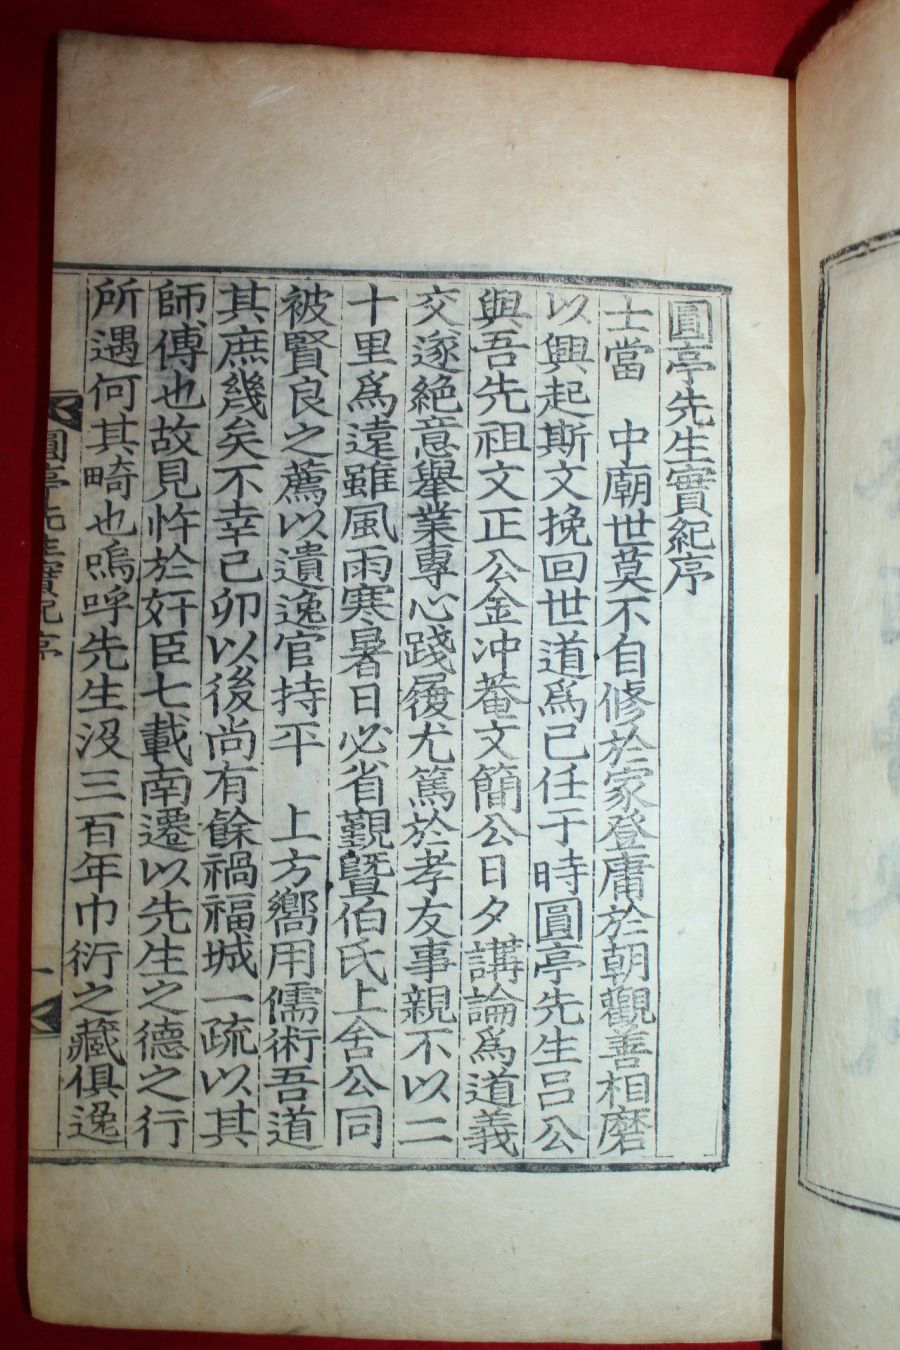 圓亭先生實紀序
士當　中廟世莫不自修於家登庸於朝觀善相磨
以興起斯文挽回世道爲己任于時圓亭先生呂公
與吾先祖文正公金冲菴文簡公日夕講論爲道義
交遂絶意擧業專心踐履尤篤於孝友事親不以二
十里爲遠雖風雨寒暑日必省覲曁伯氏上舍公同
被賢良之薦以遺逸官持平　上方嚮用儒術吾道
其庶幾矣不幸己卯以後尚有餘禍福城一疏以其
師傅也故見忤於奸臣七載南遷以先生之德之行
所遇何其畸也嗚呼先生沒三百年巾衍之藏俱逸
圓亭先生實紀序
一